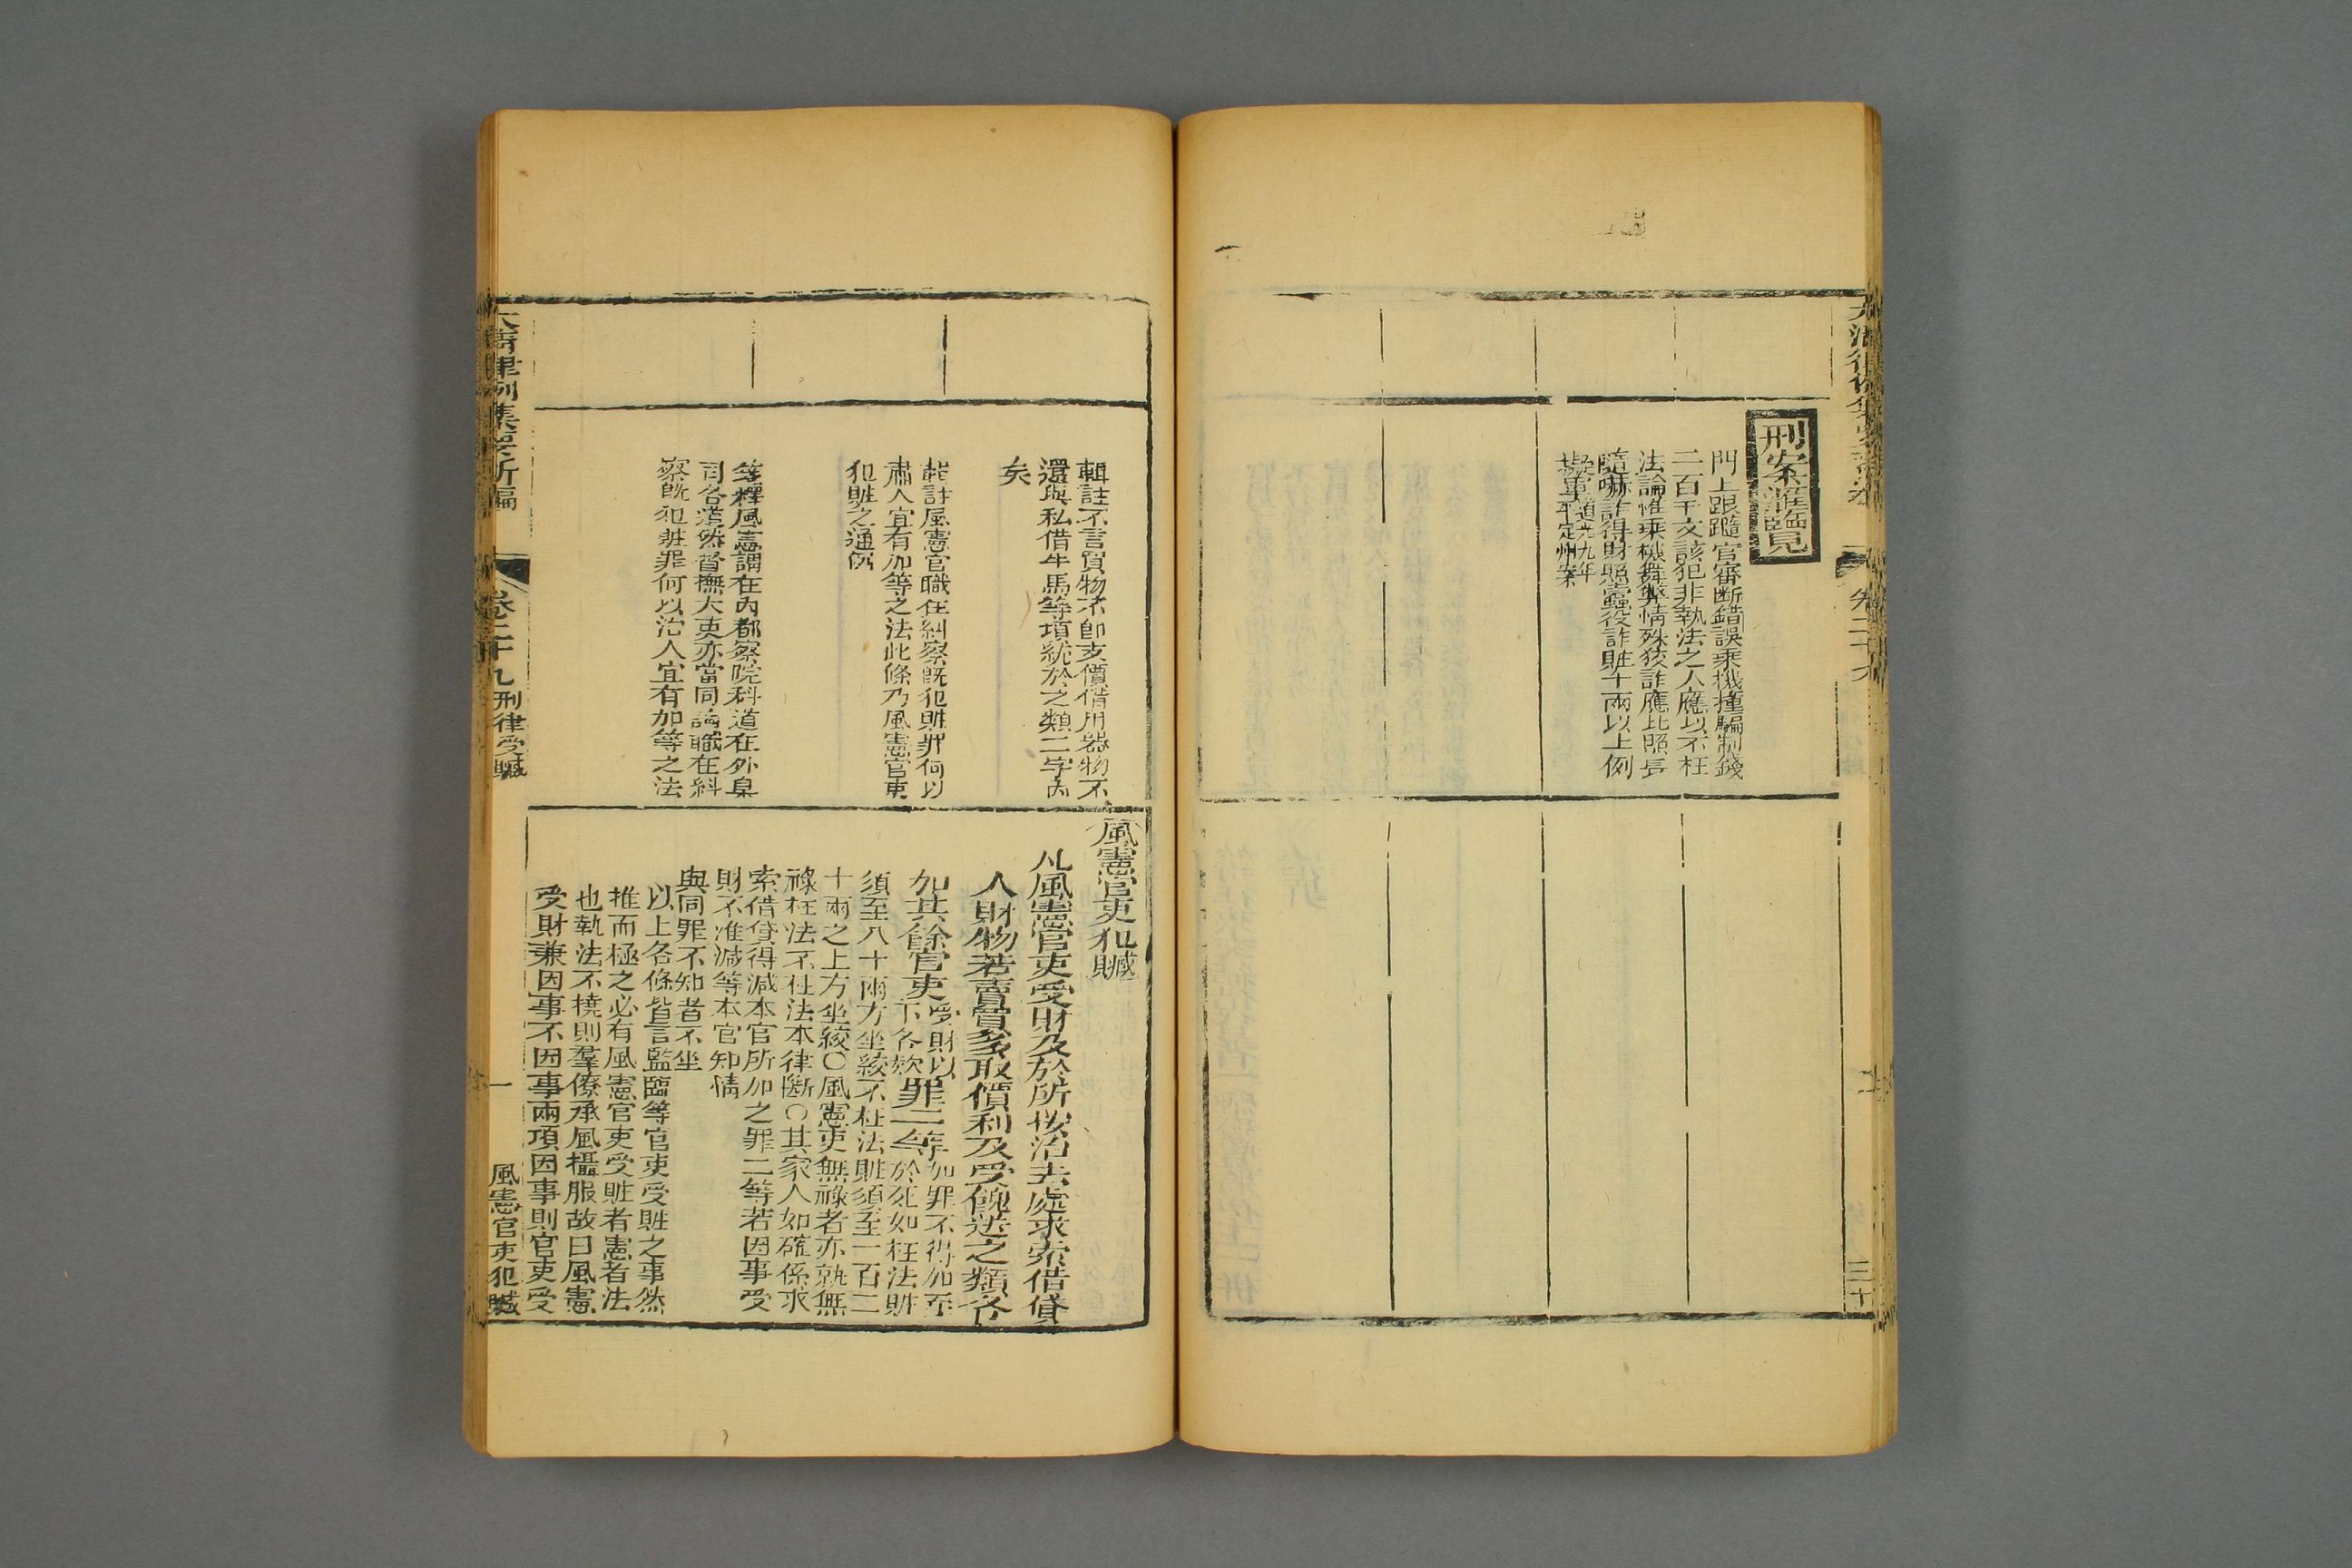 刑案滙覽
門上跟隨官審斷錯誤乘機撞騙制錢
二百千文該犯非執法之人應以不枉
法論惟乘機舞弊情殊狡詐應比照長
隨嚇詐得財照蠹役詐贓十兩以上例
道光九年
平定州案
三十
輯註不言買物不卽支價借用器物不
還與私借牛馬等項統於之類二字內
矣
輯註風憲官職在糾察旣犯贓罪何以
肅人宜有加等之法此條乃風憲官吏
犯贓之通例
箋釋風憲謂在內都察院科道在外臬
司各道然督撫大吏亦當同論職在糾
察旣犯贓罪何以治人宜有加等之法
風憲官吏犯贓
凡風憲官吏受財及於所按治去處求索借貸
人財物若賣買多取價利及受餽送之類各
加其餘官吏受財以下各款罪二等加罪不得加至於死如枉法贓
須至八十兩方坐絞不枉法贓須至一百二
十兩之上方坐絞〇風憲吏無祿者亦就無
祿枉法不枉法本律斷〇其家人如確係求
索借貸得減本官所加之罪二等若因事受
財不准減等本官知情
與同罪不知者不坐
以上各條皆言監臨等官吏受贓之事然
推而極之必有風憲官吏受贓者憲者法
也執法不撓則羣僚承風攝服故曰風憲
受財兼因事不因事兩項因事則官吏受
大清律例集要新編
卷二十九
刑律受贓
一
風憲官吏犯贓